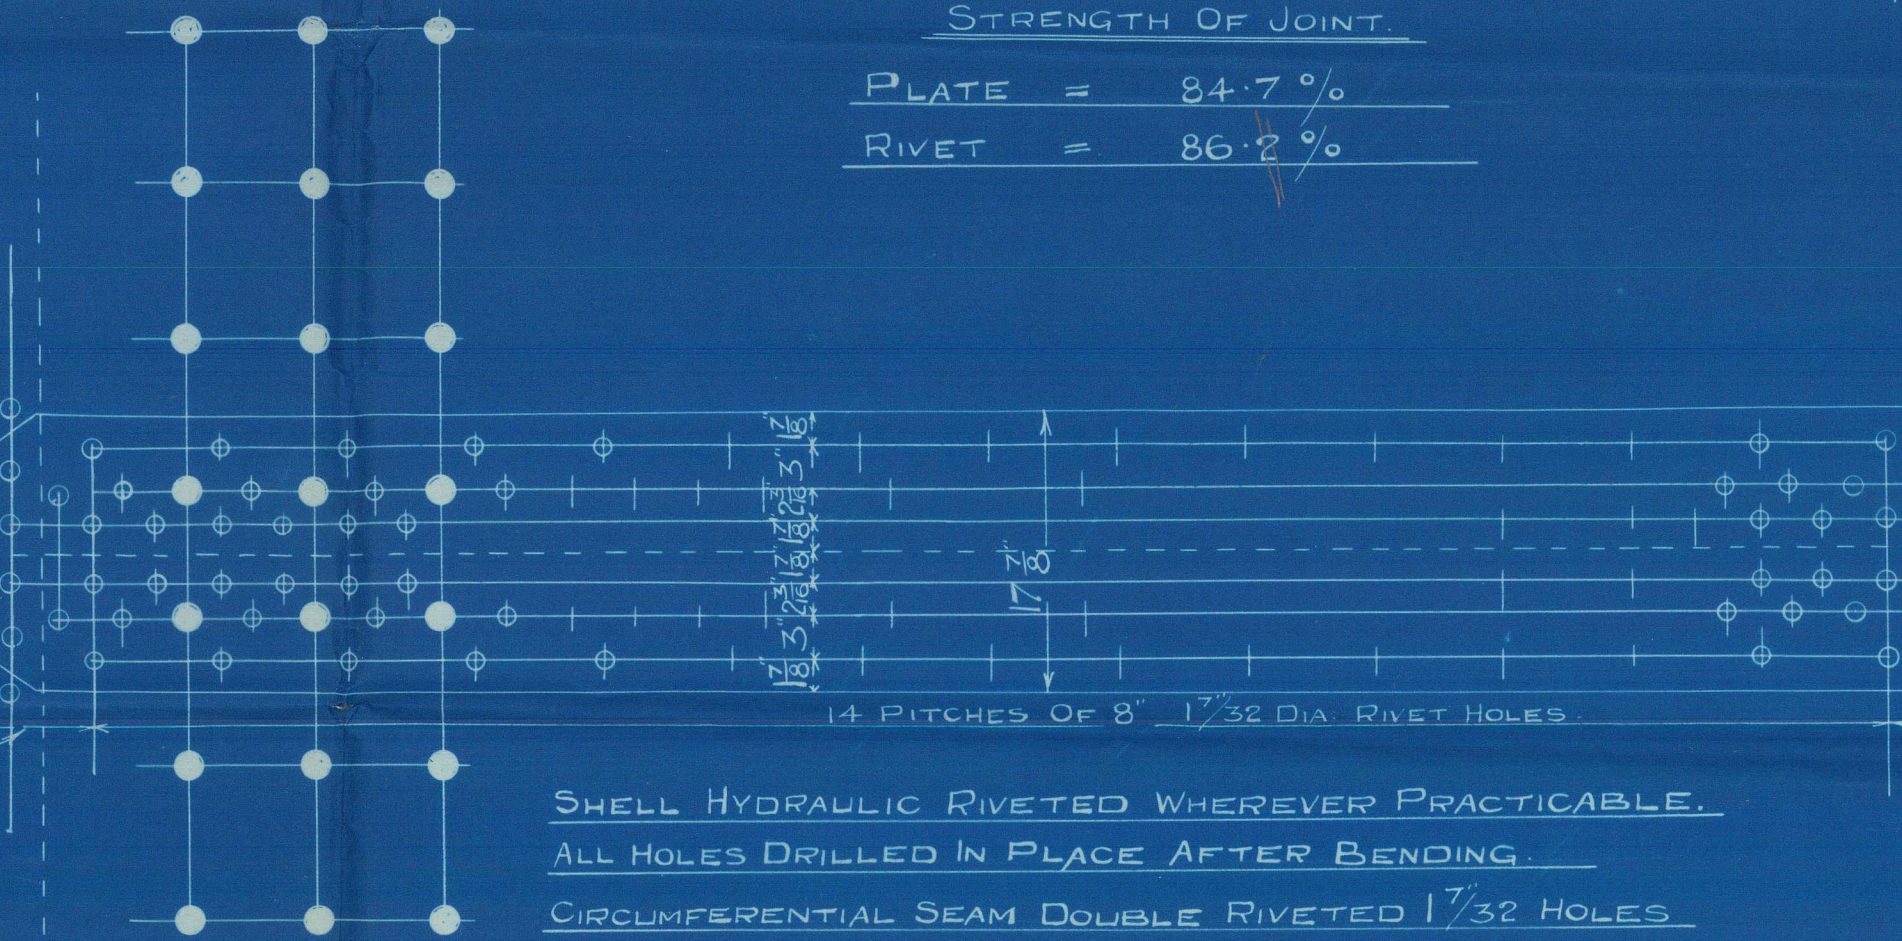 STRENGTH OF JOINT.
PLATE = 84·7 %
RIVET = 86·2 %
1 7/8"
3"
2 3/16"
1 7/8"
1 7/8"
2 3/16"
3"
1 7/8"
17 7/8"
14 PITCHES OF 8" 1 7/32" DIA. RIVET HOLES.
SHELL HYDRAULIC RIVETED WHEREVER PRACTICABLE.
ALL HOLES DRILLED IN PLACE AFTER BENDING.
CIRCUMFERENTIAL SEAM DOUBLE RIVETED 1 7/32" HOLES